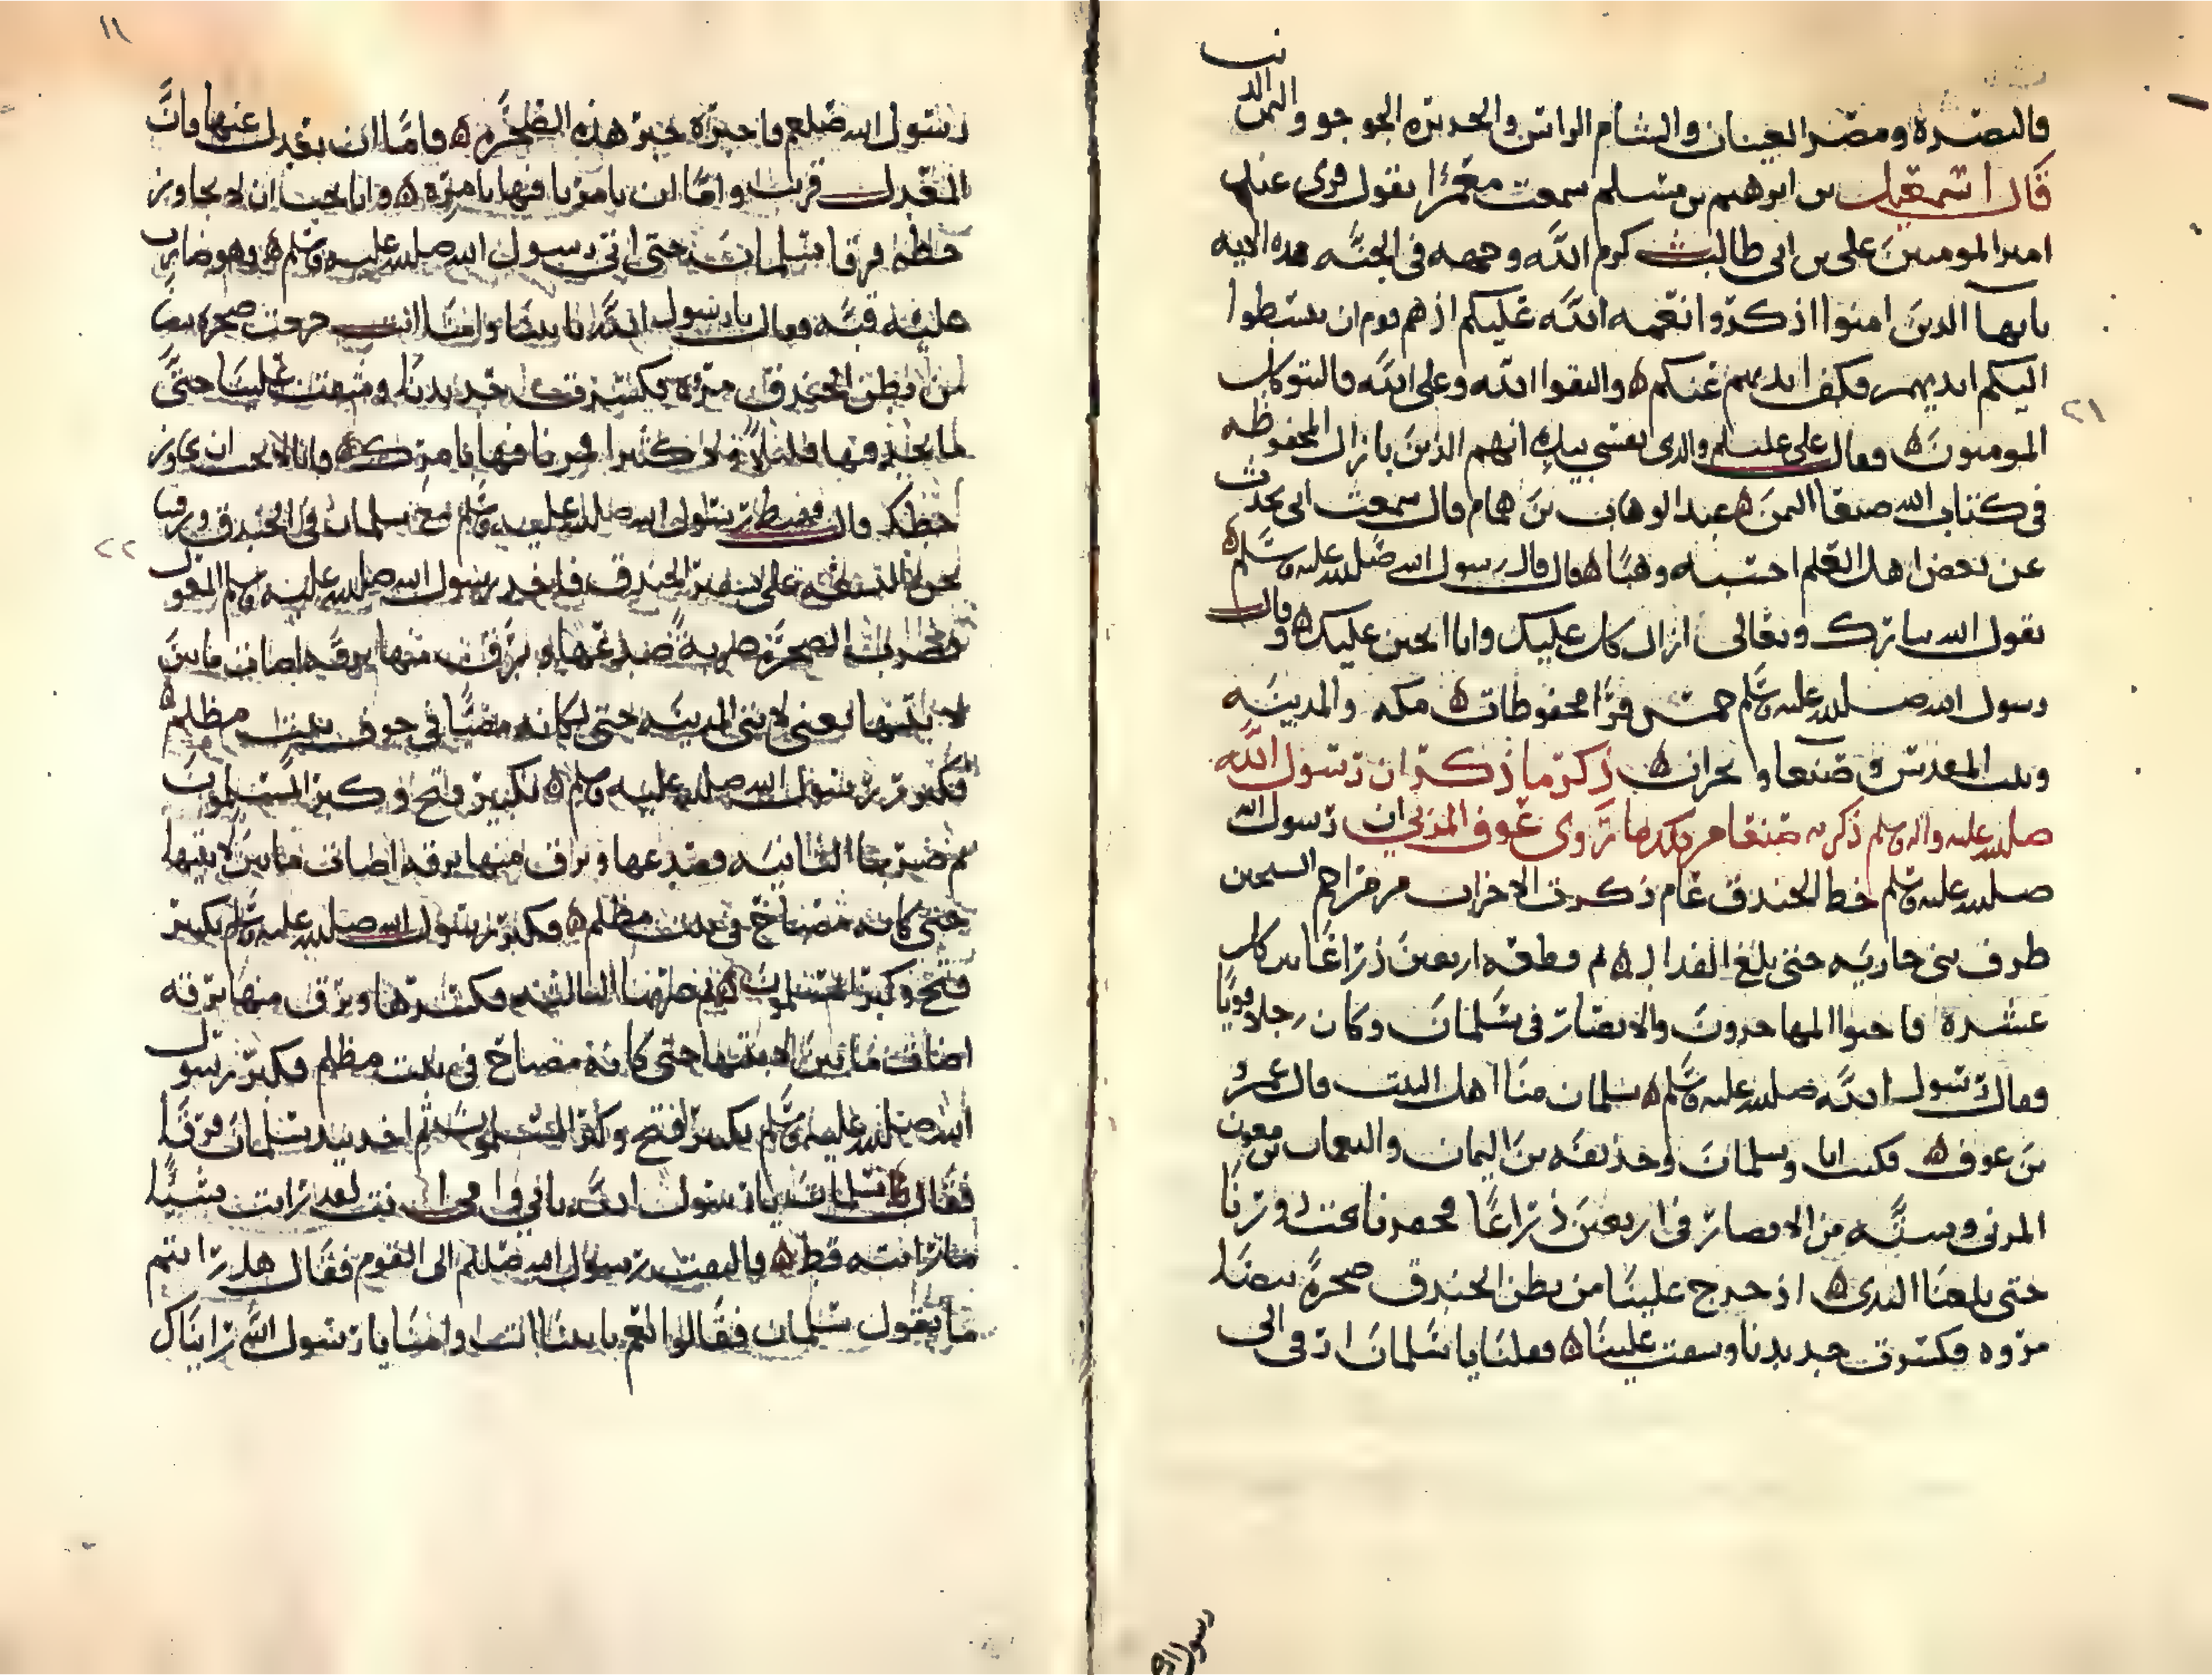 فالبصرة ومصر العينان والشام الراس والجزيرة الجوجو واليمن الذنب
قال اسمعيل بن ابرهيم بن مسلم سمعت معمرا يقول قرى عند
امير المومنين على بن ابى طالب كرم الله وجهه فى الجنه هذه الايه
يايها الذين امنوا اذكروا نعمه الله عليكم اذ هم قوم ان يبسطوا
اليكم ايديهم فكف ايديهم عنكم ه واتقوا الله وعلى الله فاليتوكل
المومنون ه فقال على عليلم والذى نفسي بيده انهم الذين بازال المحفوظه
فى كتاب الله صنعا اليمن ه عبد الوهاب بن همام قال سمعت ابى يحدث
عن بعض اهل العلم احسبه وهبا ه قال قال رسول الله صلى الله عليه وسلم ه
يقول الله تبارك وتعالى ازال كل عليك وانا اتحنن عليك ه وقال
رسول الله صلى الله عليه وسلم خمس قرا محفوظات ه مكه والمدينه
وبيت المقدس وصنعا ونجران ه ذكر ما ذكر ان رسول الله
صلى الله عليه واله وسلم ذكر به صنعا من بلد ما روى عوف المزنى ان رسول الله
صلى الله عليه وسلم خط الخندق عام ذكرت الاحزاب من
طرف بنى حارثه حتى بلغ ه ثم قطعه اربعين ذراعا بين كل
عشرة فاحتوا المهاجرون والانصار فى سلمان وكان رجلا قويا
فقال رسول الله صلى الله عليه وسلم ه سلمان منا اهل البيت قال عمرو
بن عوف ه فكنت انا وسلمان وحذيفه بن اليمان والنعمان بن مقرن
المزنى وسته من الانصار فى اربعين ذراعا فحفرنا
حتى بلغنا الندى ه اذ خرج علينا من بطن الخندق صخرة بيضا
مروه فكسرت حديدنا وشقت علينا ه فقلنا يا سلمان ارق الى
رسول الله
١١
رسول الله صلعم فاخبره خبر هذه الصخره ه فاما ان نعدل عنها فان
المعدل قريب واما ان يامرنا فيها بامره ه وانا نحب ان لا نجاوز
خطه فرقا سلمان حتى اتى رسول الله صلى الله عليه وسلم ه وهو ضارب
عليه قبه فقال يا رسول الله بابينا وامنا انت خرجت صخره بيضا
من بطن الخندق مروه فكسرت حديدنا وشقت علينا حتى
ما يحيد فيها قليلا ولا كثيرا فمرنا فيها بامرك ه فانا لا نحب ان نجاوز
خطك قال فهبط رسول الله صلى الله عليه وسلم مع سلمان فى الخندق ورقينا
نحن التسعه على شفير الخندق فاخذ رسول الله صلى الله عليه وسلم المعول
فضرب الصخره ضربة صدعها وبرق منها برقه اضات ما بين
لابتيها يعنى لابتى المدينه حتى لكانه مصباحا فى جوف بيت مظلم ه
فكبر رسول الله صلى الله عليه وسلم ه تكبير فتح وكبر المسلمون
ثم ضربها الثانيه فصدعها وبرق منها برقه اضات ما بين لابتيها
حتى كانه مصباح فى بيت مظلم ه فكبر رسول الله صلى الله عليه وسلم تكبير
فتح وكبر المسلمون ه ثم ضربها الثالثه فكسرها وبرق منها برقه
اضات ما بين لابتيها حتى كانه مصباح فى بيت مظلم فكبر رسول
الله صلى الله عليه وسلم تكبير فتح وكبر المسلمون ثم اخذ بيد سلمان فرقا
فقال سلمان يا رسول الله بابى وامى انت لقد رايت شيئا
ما رايته قط ه فالتفت رسول الله صلعم الى القوم فقال هل رايتم
ما يقول سلمان فقالوا نعم بابينا انت وامنا يا رسول الله رايناك